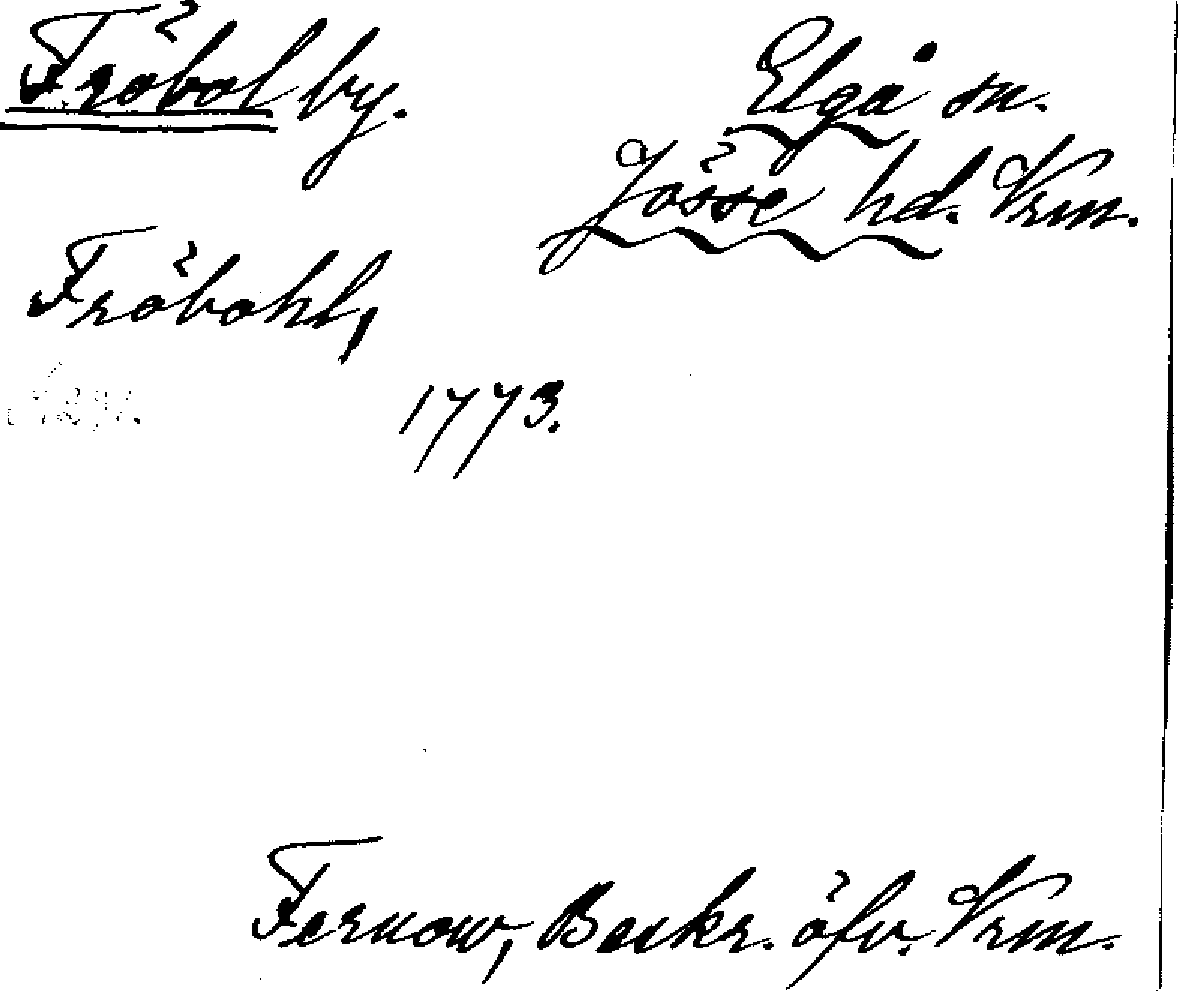 Fröbol by.
Elgå sn.
Jösse hd. Vrm.
Fröbohl,
1773.
Fernow, Beskr. öfv. Vrm.